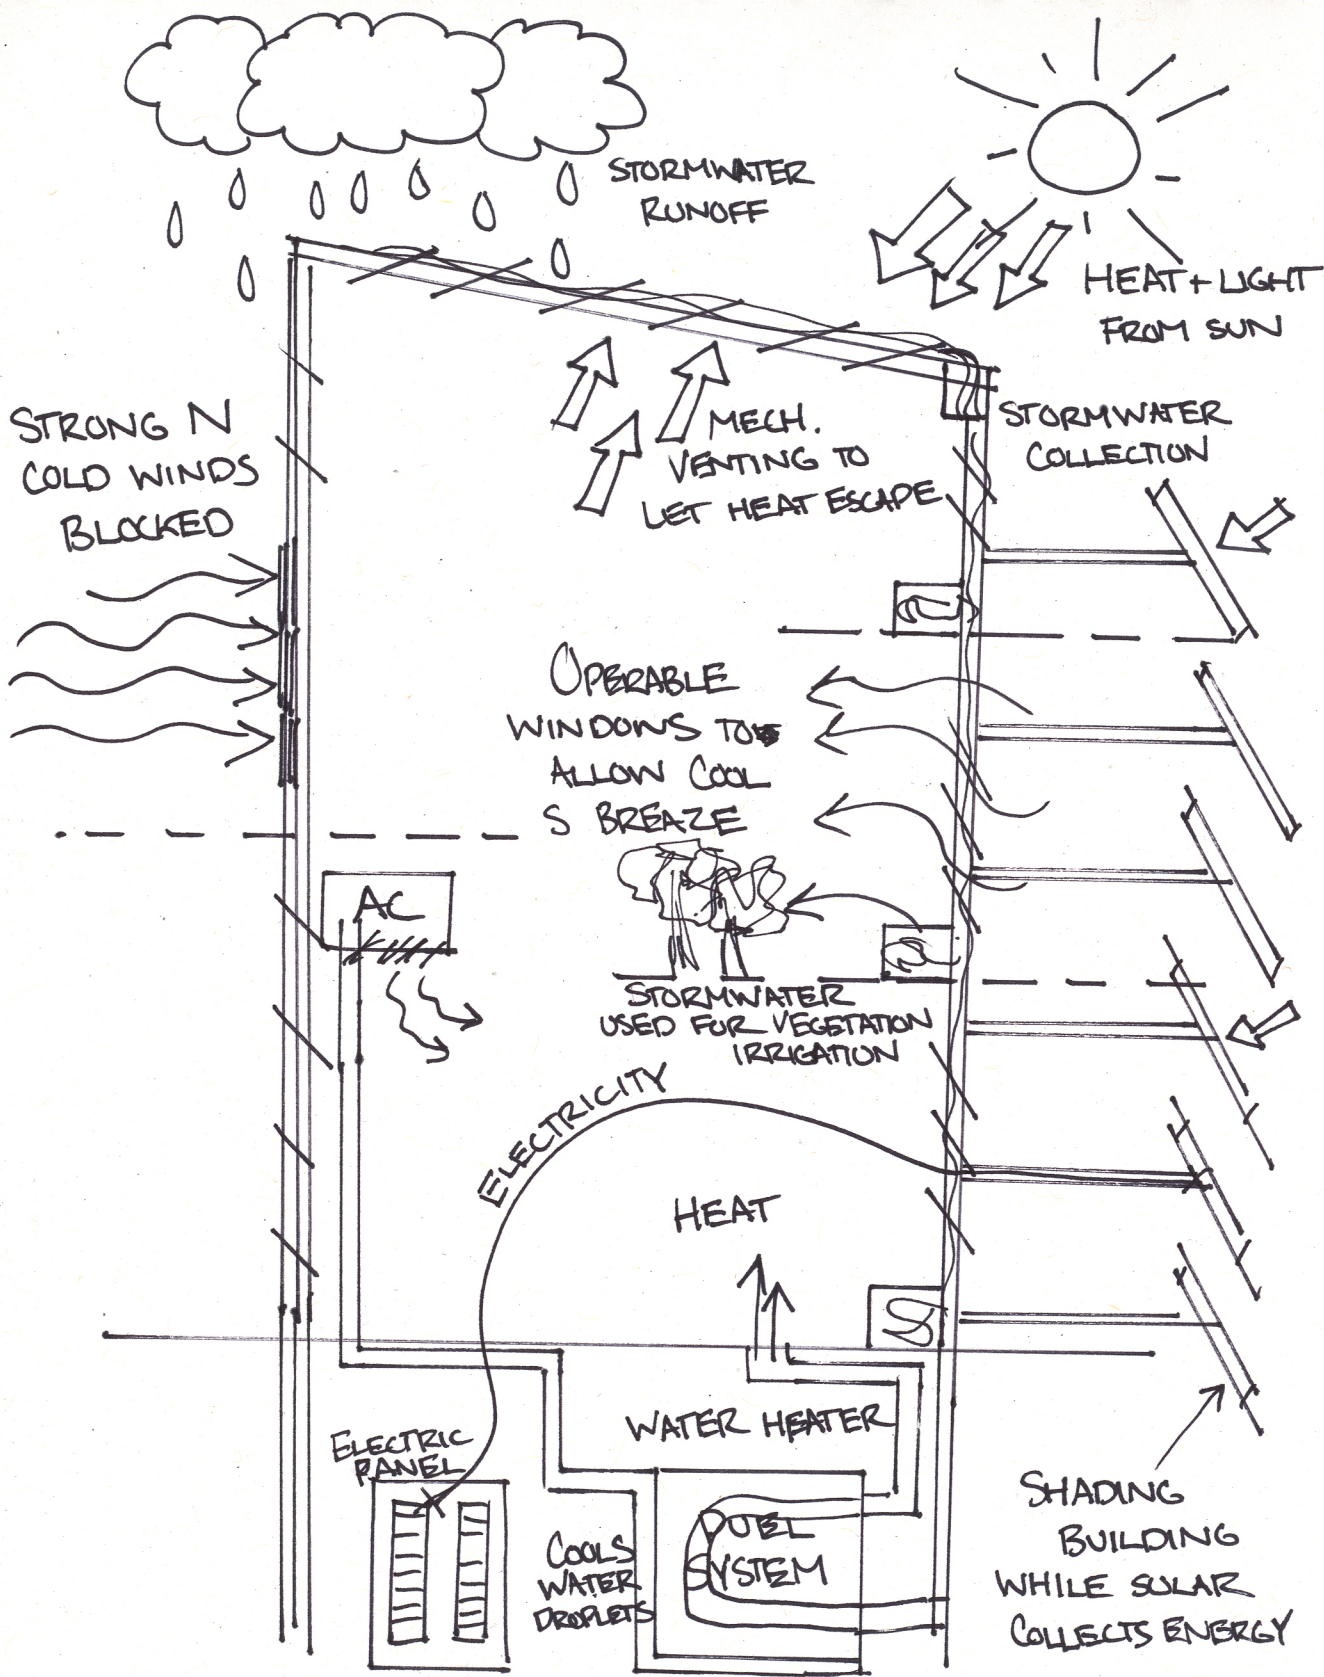 STORMWATER
RUNOFF
HEAT + LIGHT
FROM SUN
STRONG N
COLD WINDS
BLOCKED
MECH.
VENTING TO
LET HEAT ESCAPE
STORMWATER
COLLECTION
OPERABLE
WINDOWS TO
ALLOW COOL
S BREAZE
AC
STORMWATER
USED FOR VEGETATION
IRRIGATION
ELECTRICITY
HEAT
WATER HEATER
ELECTRIC
PANEL
COOLS
WATER
DROPLETS
DUEL
SYSTEM
SHADING
BUILDING
WHILE SOLAR
COLLECTS ENERGY